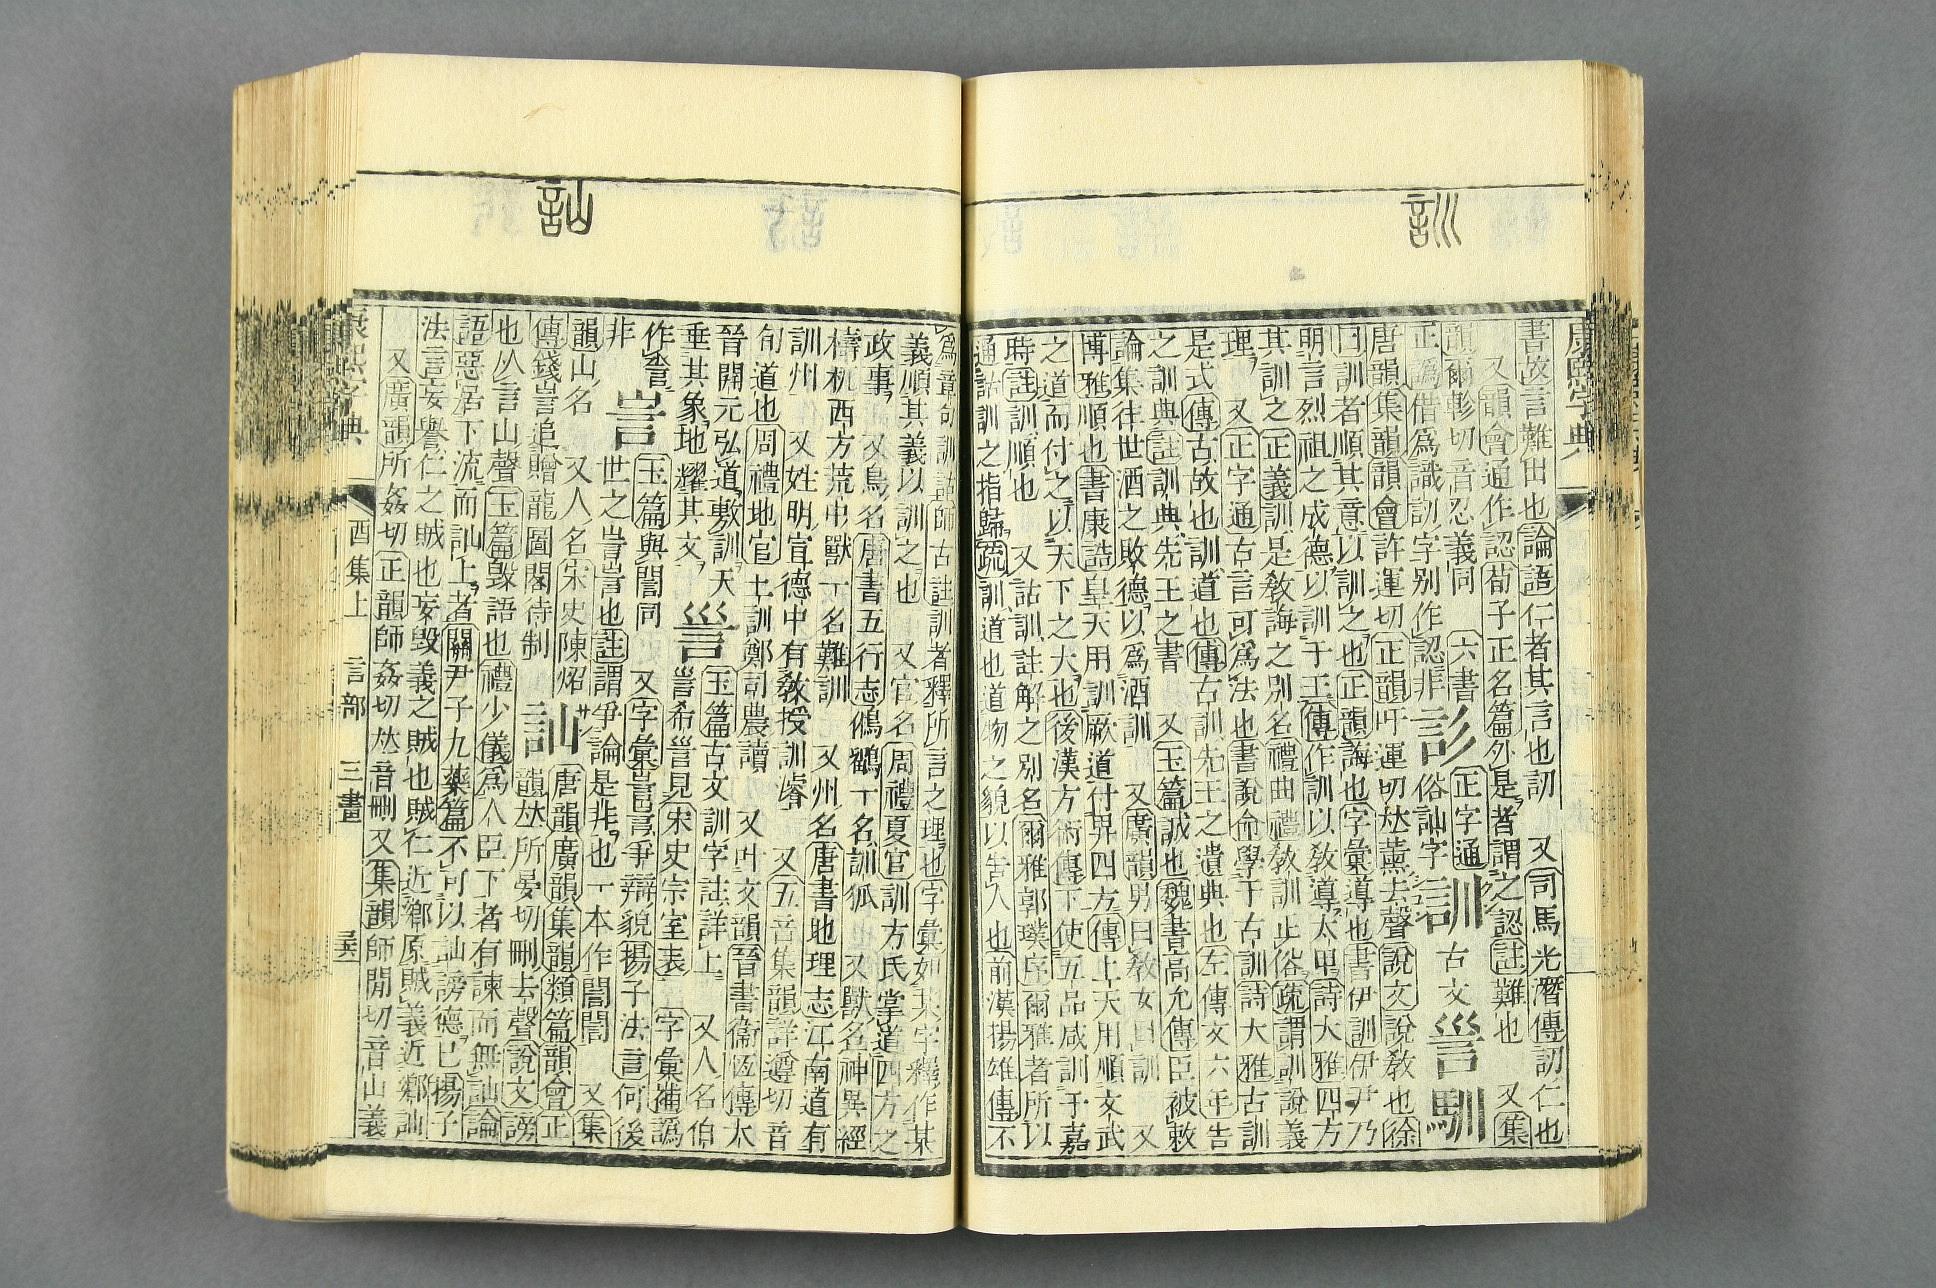 訓
康熙字典
書故言難出也論語仁者其言也訒 又司馬光潛傳訒仁也
又韻會通作認荀子正名篇外是者謂之認註難也 又集
韻爾軫切音忍義同 六書
正譌借爲識訒字別作認非
正字通
俗訕字
訓 古文 馴
唐韻集韻韻會許運切正韻吁運切𠀤熏去聲說文說敎也徐
曰訓者順其意以訓之也正韻誨也字彙導也書伊訓伊尹乃
明言烈祖之成德以訓于王傳作訓以敎導太甲詩大雅四方
其訓之正義訓是敎誨之別名禮曲禮敎訓正俗疏謂訓說義
理 又正字通古言可爲法也書說命學于古訓詩大雅古訓
是式傳古故也訓道也傳古訓先王之遺典也左傳文六年告
之訓典註訓典先王之書 又玉篇誡也魏書高允傳臣被敕
論集往世酒之敗德以爲酒訓 又廣韻男曰敎女曰訓 又
博雅順也書康誥皇天用訓厥道付畀四方傳上天用順文武
之道而付之以天下之大也後漢方術傳下使五品咸訓于嘉
時註訓順也 又詁訓註解之別名爾雅郭璞序爾雅者所以
通詁訓之指歸疏訓道也道物之貌以告人也前漢揚雄傳不
訕
爲章句訓詁師古註訓者釋所言之理也字彙如某字釋作某
義順其義以訓之也 又官名周禮夏官訓方氏掌道四方之
政事 又鳥名唐書五行志鵂鶹一名訓狐 又獸名神異經
檮杌西方荒中獸一名難訓 又州名唐書地理志江南道有
訓州 又姓明宣德中有敎授訓濬 又五音集韻詳遵切音
旬道也周禮地官土訓鄭司農讀 又叶文韻晉書衞恆傳大
晉開元弘道敷訓天
垂其象地耀其文
玉篇古文訓字註詳上 又人名伯
希見宋史宗室表 字彙補譌
作
訔 玉篇與誾同 又字彙訔訔爭辯貌揚子法言何後
世之訔訔也註謂爭論是非也一本作誾誾 又集
韻山名 又人名宋史陳炤
傳錢訔追贈龍圖閣待制
訕 唐韻廣韻集韻類篇韻會正
韻𠀤所晏切刪去聲說文謗
也从言山聲玉篇毀語也禮少儀爲人臣下者有諫而無訕論
語惡居下流而訕上者關尹子九藥篇不可以訕謗德已揚子
法言妄譽仁之賊也妄毀義之賊也賊仁近鄕原賊義近鄕訕
又廣韻所姦切正韻師姦切𠀤音刪又集韻師閒切音山義
康熙字典 酉集上 言部 三畫